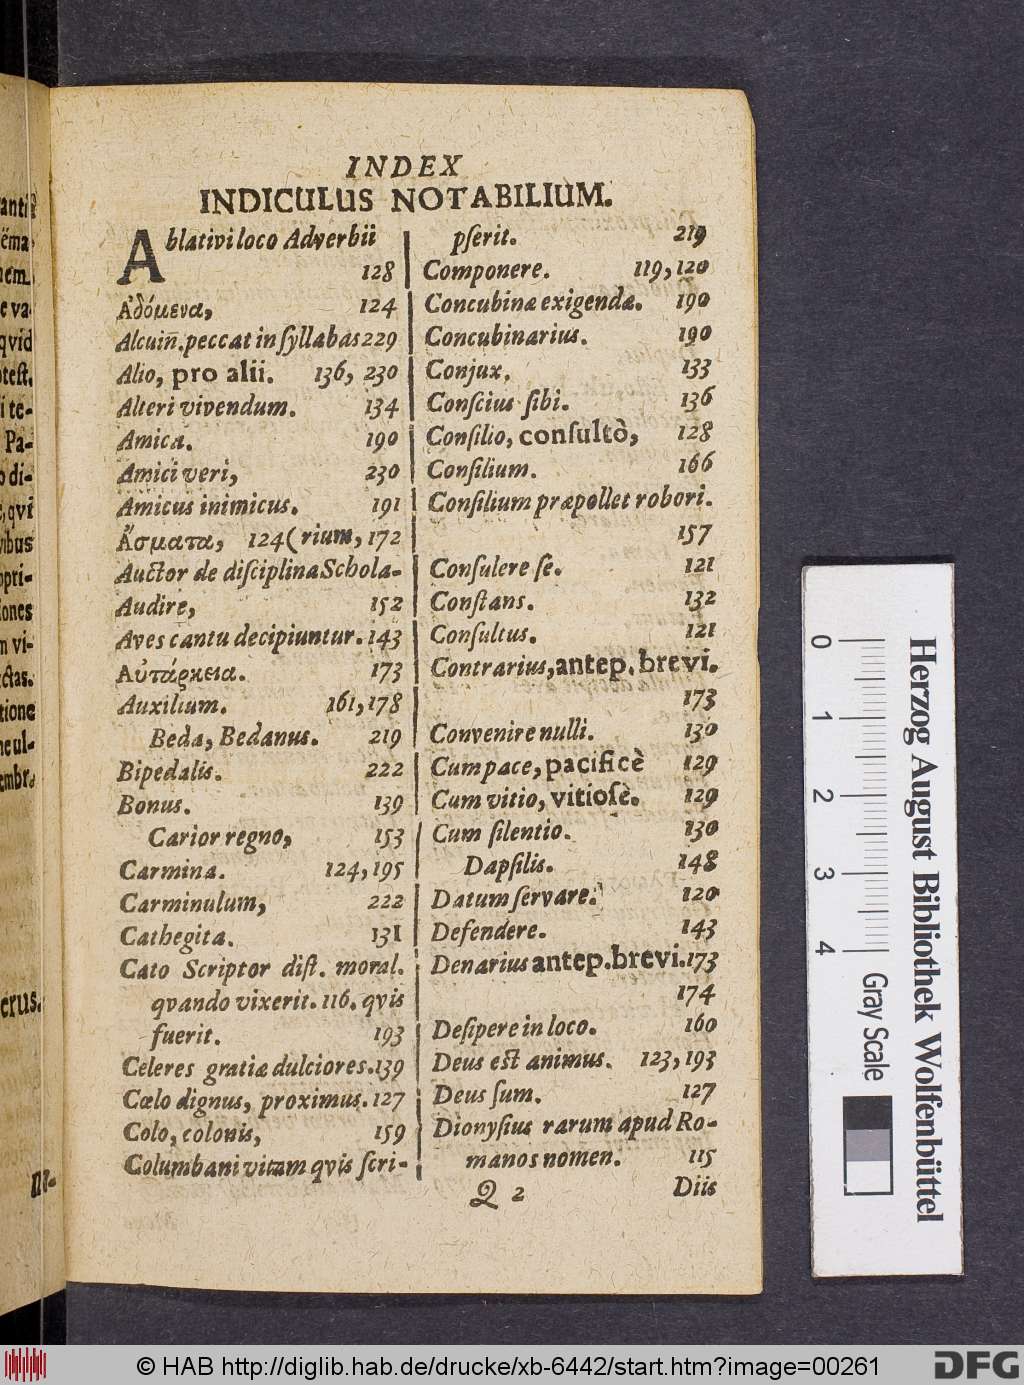 INDEX
INDICULUS NOTABILIUM.
Ablativi loco Adverbii
128
Αδόμενα, 124
Alcuin. peccat in ſyllabas 229
Alio, pro alii. 136, 230
Alteri vivendum. 134
Amica. 190
Amici veri, 230
Amicus inimicus. 191
Ἄσματα, 124 (rium, 172
Auctor de diſciplina Schola-
Audire, 152
Aves cantu decipiuntur. 143
Αὐτάρκεια. 173
Auxilium. 161, 178
Beda, Bedanus. 219
Bipedalis. 222
Bonus. 139
Carior regno, 153
Carmina. 124, 195
Carminulum, 222
Cathegita. 131
Cato Scriptor diſt. moral.
qvando vixerit. 116. qvis
fuerit. 193
Celeres gratiæ dulciores. 139
Cœlo dignus, proximus. 127
Colo, colonis, 159
Columbani vitam qvis ſcri-
pſerit. 219
Componere. 119, 120
Concubinæ exigendæ. 190
Concubinarius. 190
Conjux. 133
Conſcius ſibi. 136
Conſilio, conſultò, 128
Conſilium. 166
Conſilium præpollet robori.
157
Conſulere ſe. 121
Conſtans. 132
Conſultus. 121
Contrarius, antep. brevi.
173
Convenire nulli. 130
Cum pace, pacificè 129
Cum vitio, vitioſè. 129
Cum ſilentio. 130
Dapſilis. 148
Datum ſervare. 120
Defendere. 143
Denarius antep. brevi. 173
174
Deſipere in loco. 160
Deus eſt animus. 123, 193
Deus ſum. 127
Dionyſius rarum apud Ro-
manos nomen. 115
Q 2 Diis
anti?
ëma-
nem.
e va-
qvid
oteſt.
i te-
Pa-
o di-
, qvi
vibus
opti-
iones
n vi-
ctas.
tione
ne ul-
embra
erus.
0 1 2 3 4
Herzog August Bibliothek Wolfenbüttel
Gray Scale
© HAB http://diglib.hab.de/drucke/xb-6442/start.htm?image=00261
DFG